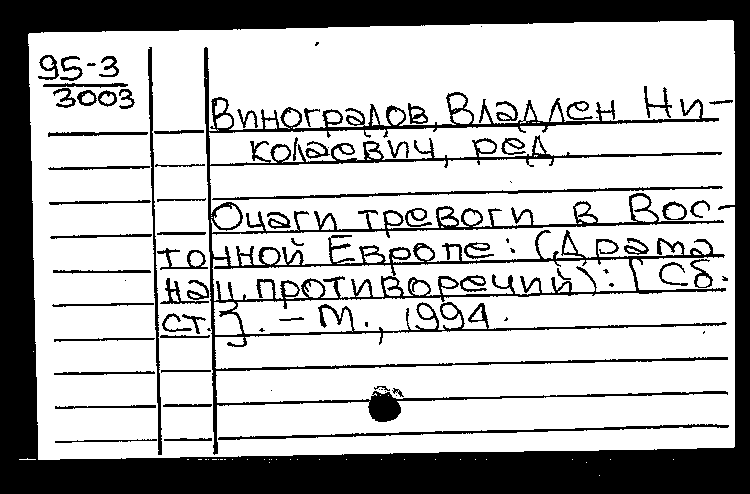 95-3
3003
Виноградов, Владлен Ни-
колаевич, ред.
Очаги тревоги в Вос-
точной Европе: (Драма
нац. противоречий): [Сб.
ст.]. - М., 1994.